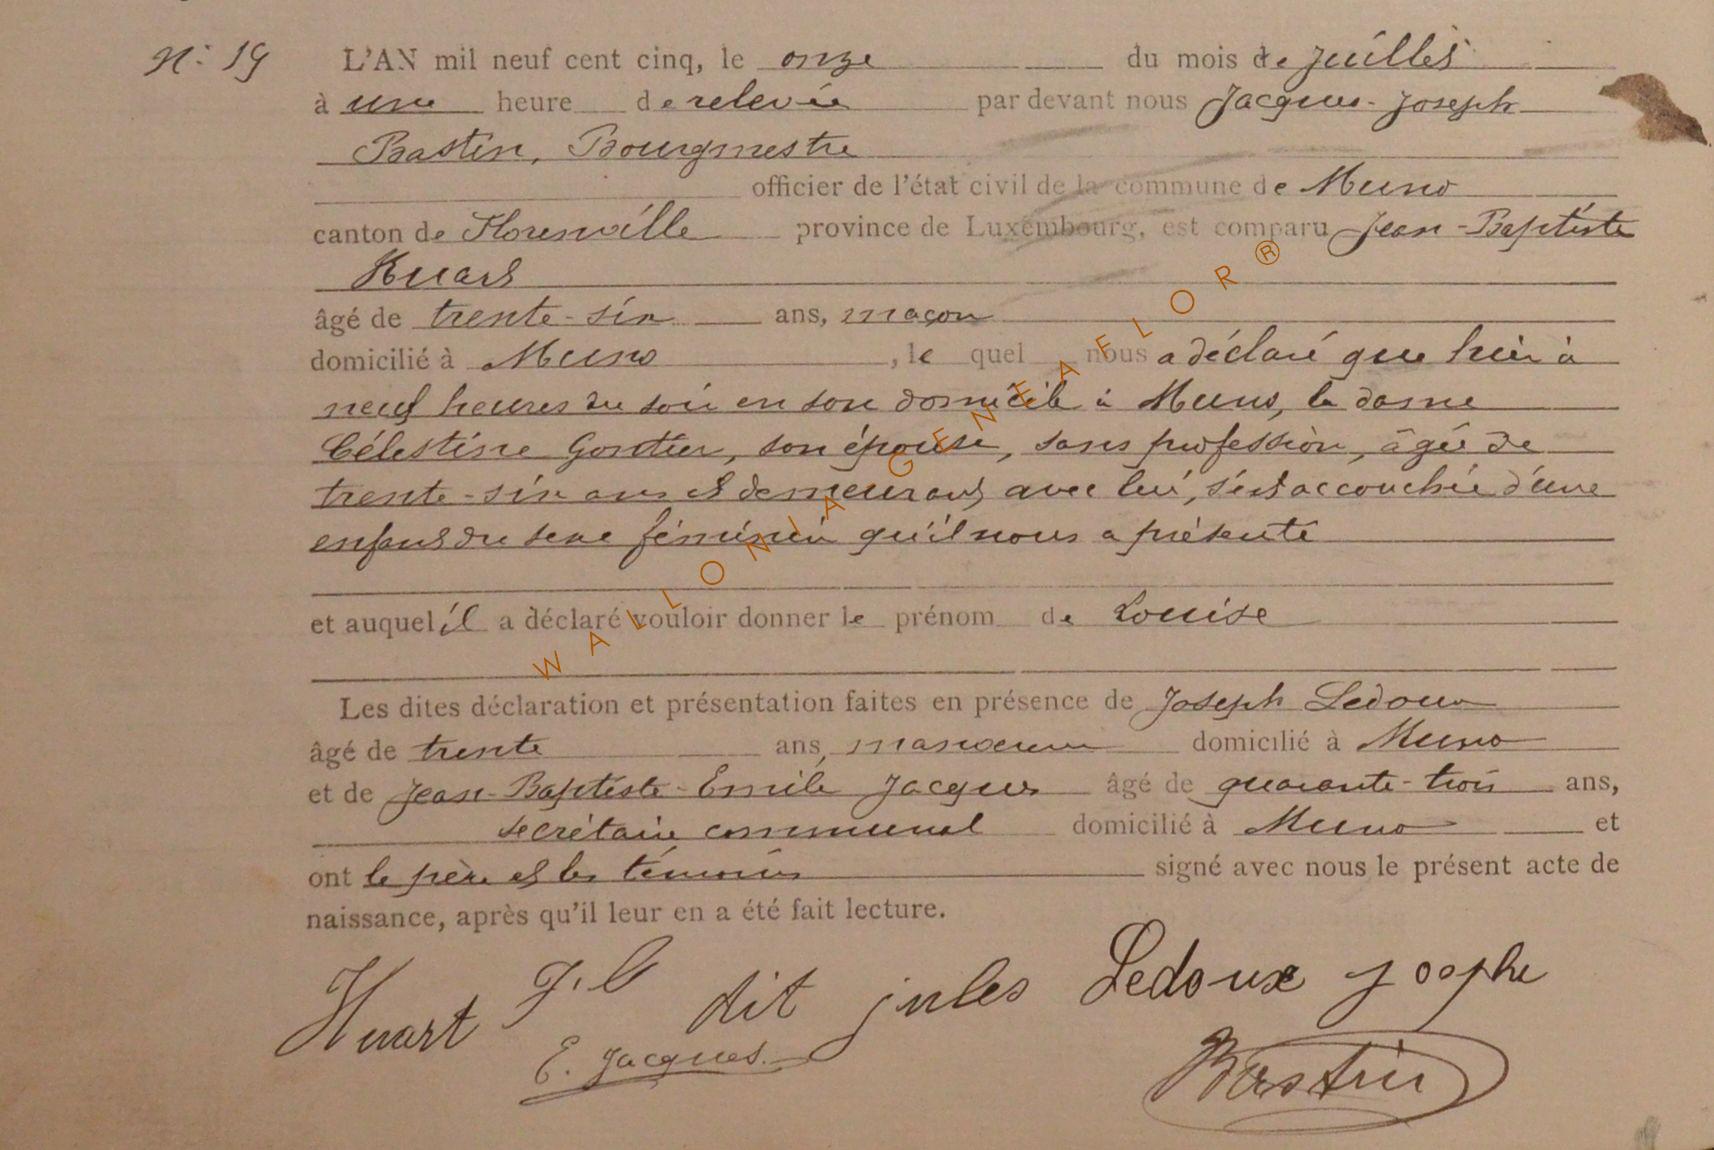 N: 19 L'AN mil neuf cent cinq, le onze du mois de juillet
à une heure de relevée par devant nous Jacques-Joseph
Bastin, Bourgmestre
officier de l'état civil de la commune de Muno
canton de Florenville province de Luxembourg, est comparu Jean-Baptiste
Huart
âgé de trente-six ans, maçon
domicilié à Muno, le quel nous a déclaré que hier à
neuf heures du soir en son domicile à Muno, la dame
Célestine Gontier, son épouse, sans profession, âgée de
trente-six ans et demeurant avec lui, s'est accouchée d'une
enfant du sexe féminin qu'il nous a présenté
et auquel il a déclaré vouloir donner le prénom de Louise
Les dites déclaration et présentation faites en présence de Joseph Ledoux
âgé de trente ans, manœuvre domicilié à Muno
et de Jean-Baptiste-Emile Jacques âgé de quarante-trois ans,
secrétaire communal domicilié à Muno et
ont le père et les témoins signé avec nous le présent acte de
naissance, après qu'il leur en a été fait lecture.
Huart J.B dit jules Ledoux Joophe
E. Jacques
Bastin
WALLONIA GENEAFLOR®